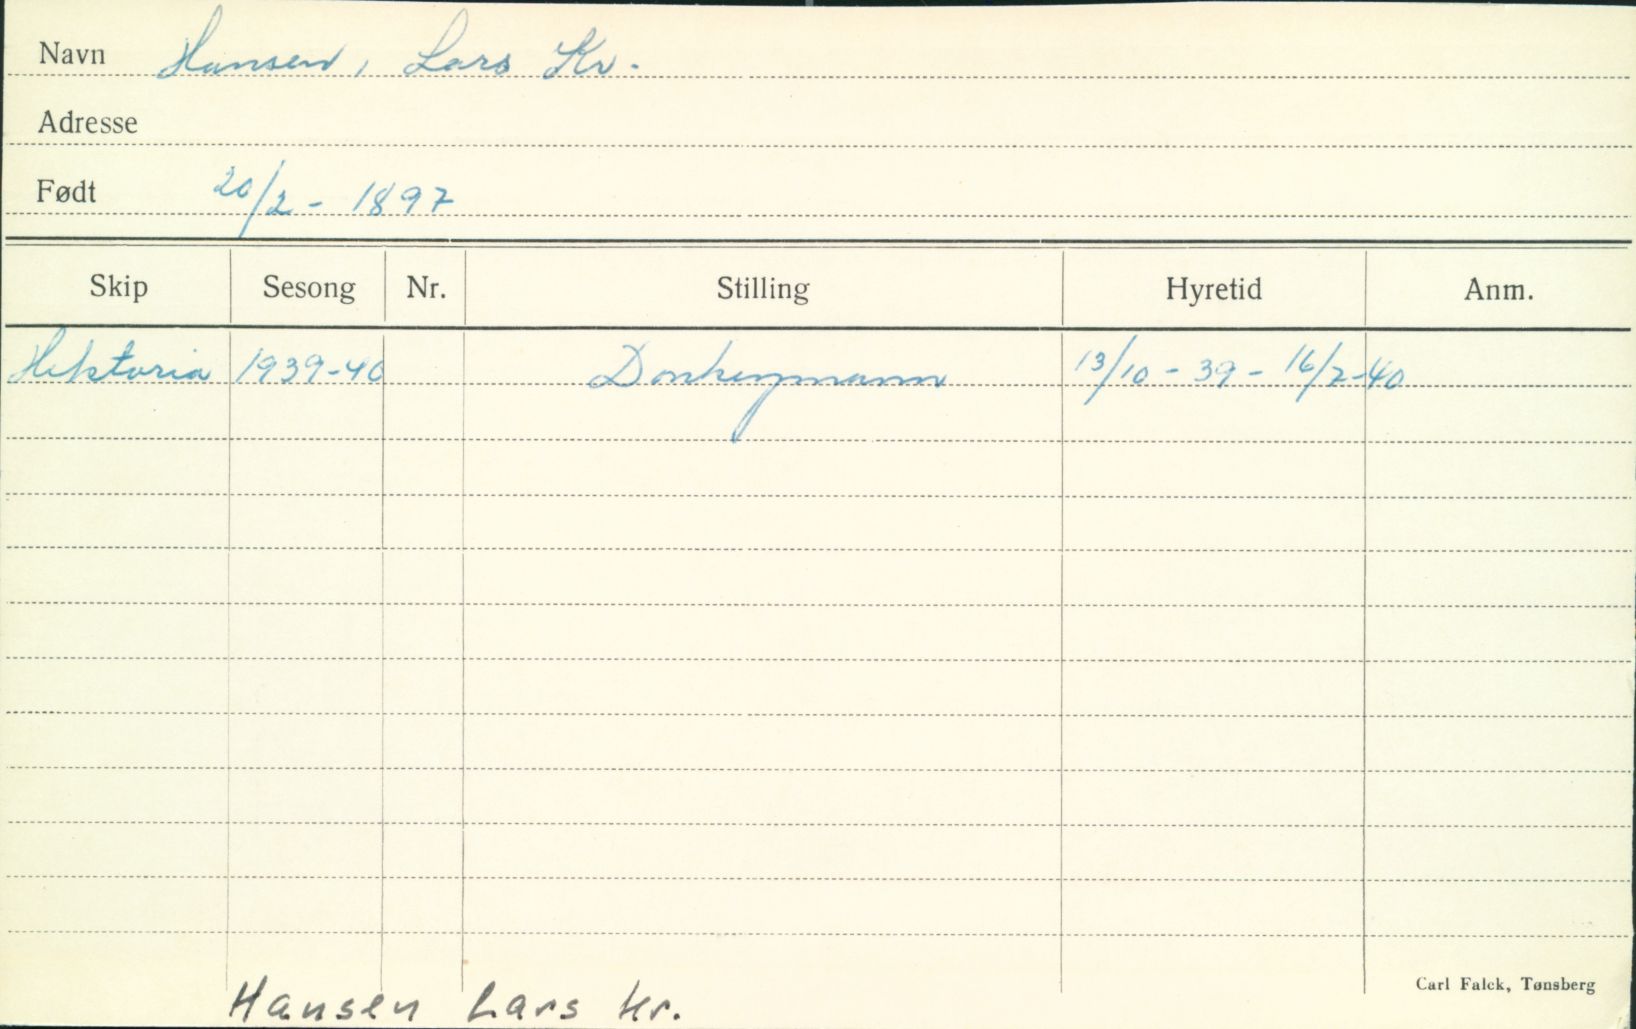 Navn Hansen, Lars Kr.
Adresse
Født 20/2 - 1897
Skip Sesong Nr. Stilling Hyretid Anm.
Hektoria 1939-40 Donkeymann 13/10 - 39 - 16/2-40
Carl Falck, Tønsberg
Hansen Lars Kr.